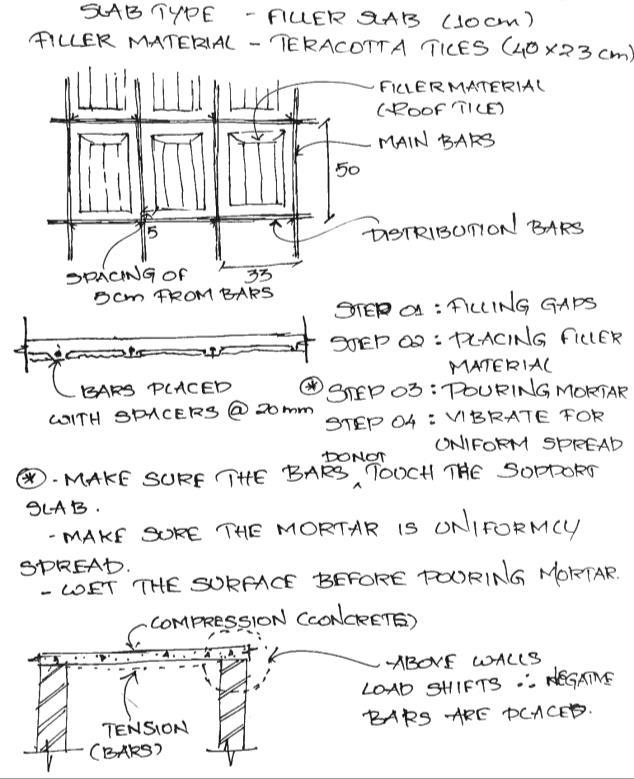 SLAB TYPE - FILLER SLAB (10cm)
FILLER MATERIAL - TERACOTTA TILES (40x23cm)
FILLER MATERIAL
(ROOF TILE)
MAIN BARS
50
DISTRIBUTION BARS
5
33
SPACING OF
5cm FROM BARS
BARS PLACED
WITH SPACERS @ 20mm
STEP 01 : FILLING GAPS
STEP 02 : PLACING FILLER
MATERIAL
* STEP 03 : POURING MORTAR
STEP 04 : VIBRATE FOR
UNIFORM SPREAD
* - MAKE SURE THE BARS DO NOT TOUCH THE SUPPORT
SLAB.
- MAKE SURE THE MORTAR IS UNIFORMLY
SPREAD.
- WET THE SURFACE BEFORE POURING MORTAR.
COMPRESSION (CONCRETE)
TENSION
(BARS)
- ABOVE WALLS
LOAD SHIFTS ∴ NEGATIVE
BARS ARE PLACED.